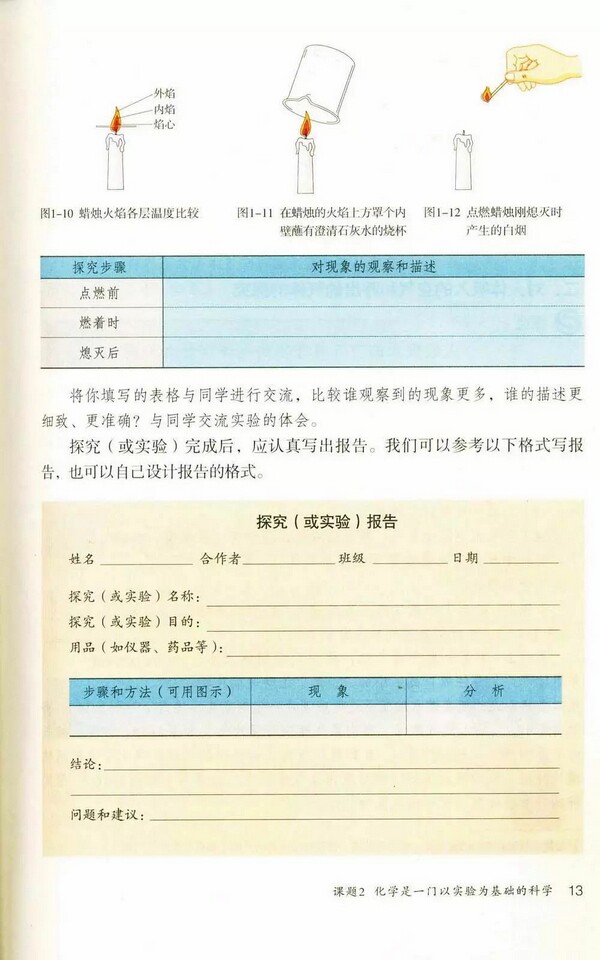 外焰
内焰
焰心
图1-10 蜡烛火焰各层温度比较
图1-11 在蜡烛的火焰上方罩个内
壁蘸有澄清石灰水的烧杯
图1-12 点燃蜡烛刚熄灭时
产生的白烟
探究步骤 对现象的观察和描述
点燃前
燃着时
熄灭后
将你填写的表格与同学进行交流，比较谁观察到的现象更多，谁的描述更
细致、更准确？与同学交流实验的体会。
探究（或实验）完成后，应认真写出报告。我们可以参考以下格式写报
告，也可以自己设计报告的格式。
探究（或实验）报告
姓名 合作者 班级 日期
探究（或实验）名称：
探究（或实验）目的：
用品（如仪器、药品等）：
步骤和方法（可用图示） 现 象 分 析
结论：
问题和建议：
课题2 化学是一门以实验为基础的科学 13